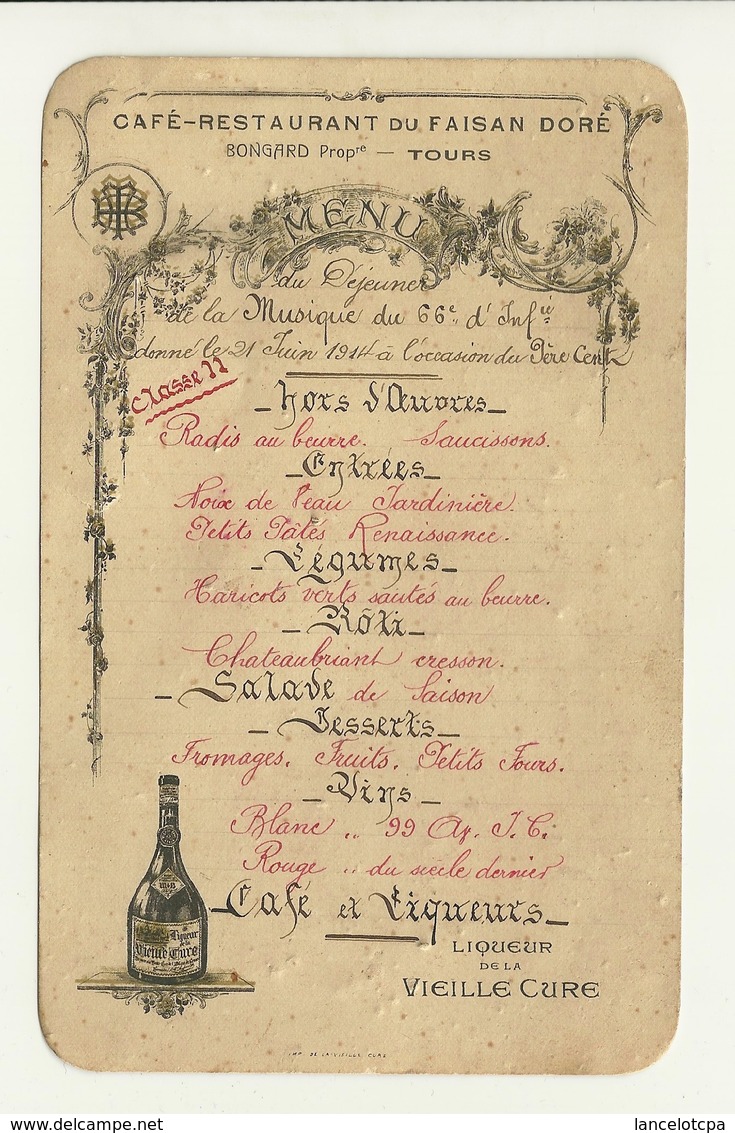 CAFÉ-RESTAURANT DU FAISAN DORÉ
BONGARD Propre — TOURS
MENU
du Déjeuner
de la Musique du 66e d'Infie
donné le 21 Juin 1914 à l'occasion du Père Cent
Classe 11
Hors d'Œuvres
Radis au beurre. Saucissons.
Entrées
Noix de Veau Jardinière.
Petits Pâtés Renaissance.
Légumes
Haricots verts sautés au beurre.
Rôti
Chateaubriant cresson.
Salade de Saison
Desserts
Fromages. Fruits. Petits Fours.
Vins
Blanc „ 99 Av. J. C.
Rouge „ du siècle dernier
Café et Liqueurs
Liqueur
de la
Vieille Cure
LIQUEUR
DE LA
VIEILLE CURE
IMP. DE LA VIEILLE CURE
www.delcampe.net
lancelotcpa